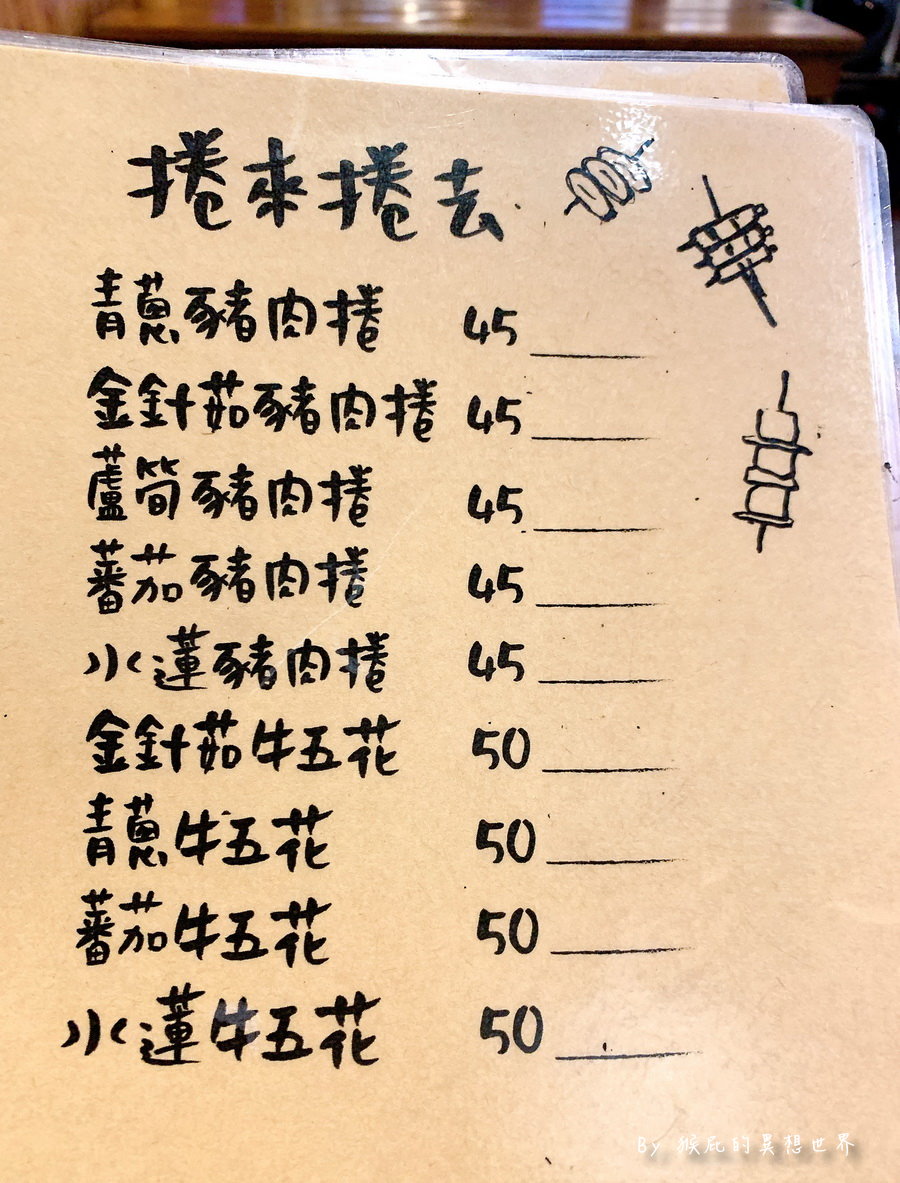 捲來捲去
青蔥豬肉捲 45
金針茹豬肉捲 45
蘆筍豬肉捲 45
蕃茄豬肉捲 45
水蓮豬肉捲 45
金針茹牛五花 50
青蔥牛五花 50
蕃茄牛五花 50
水蓮牛五花 50
By 猴屁的異想世界